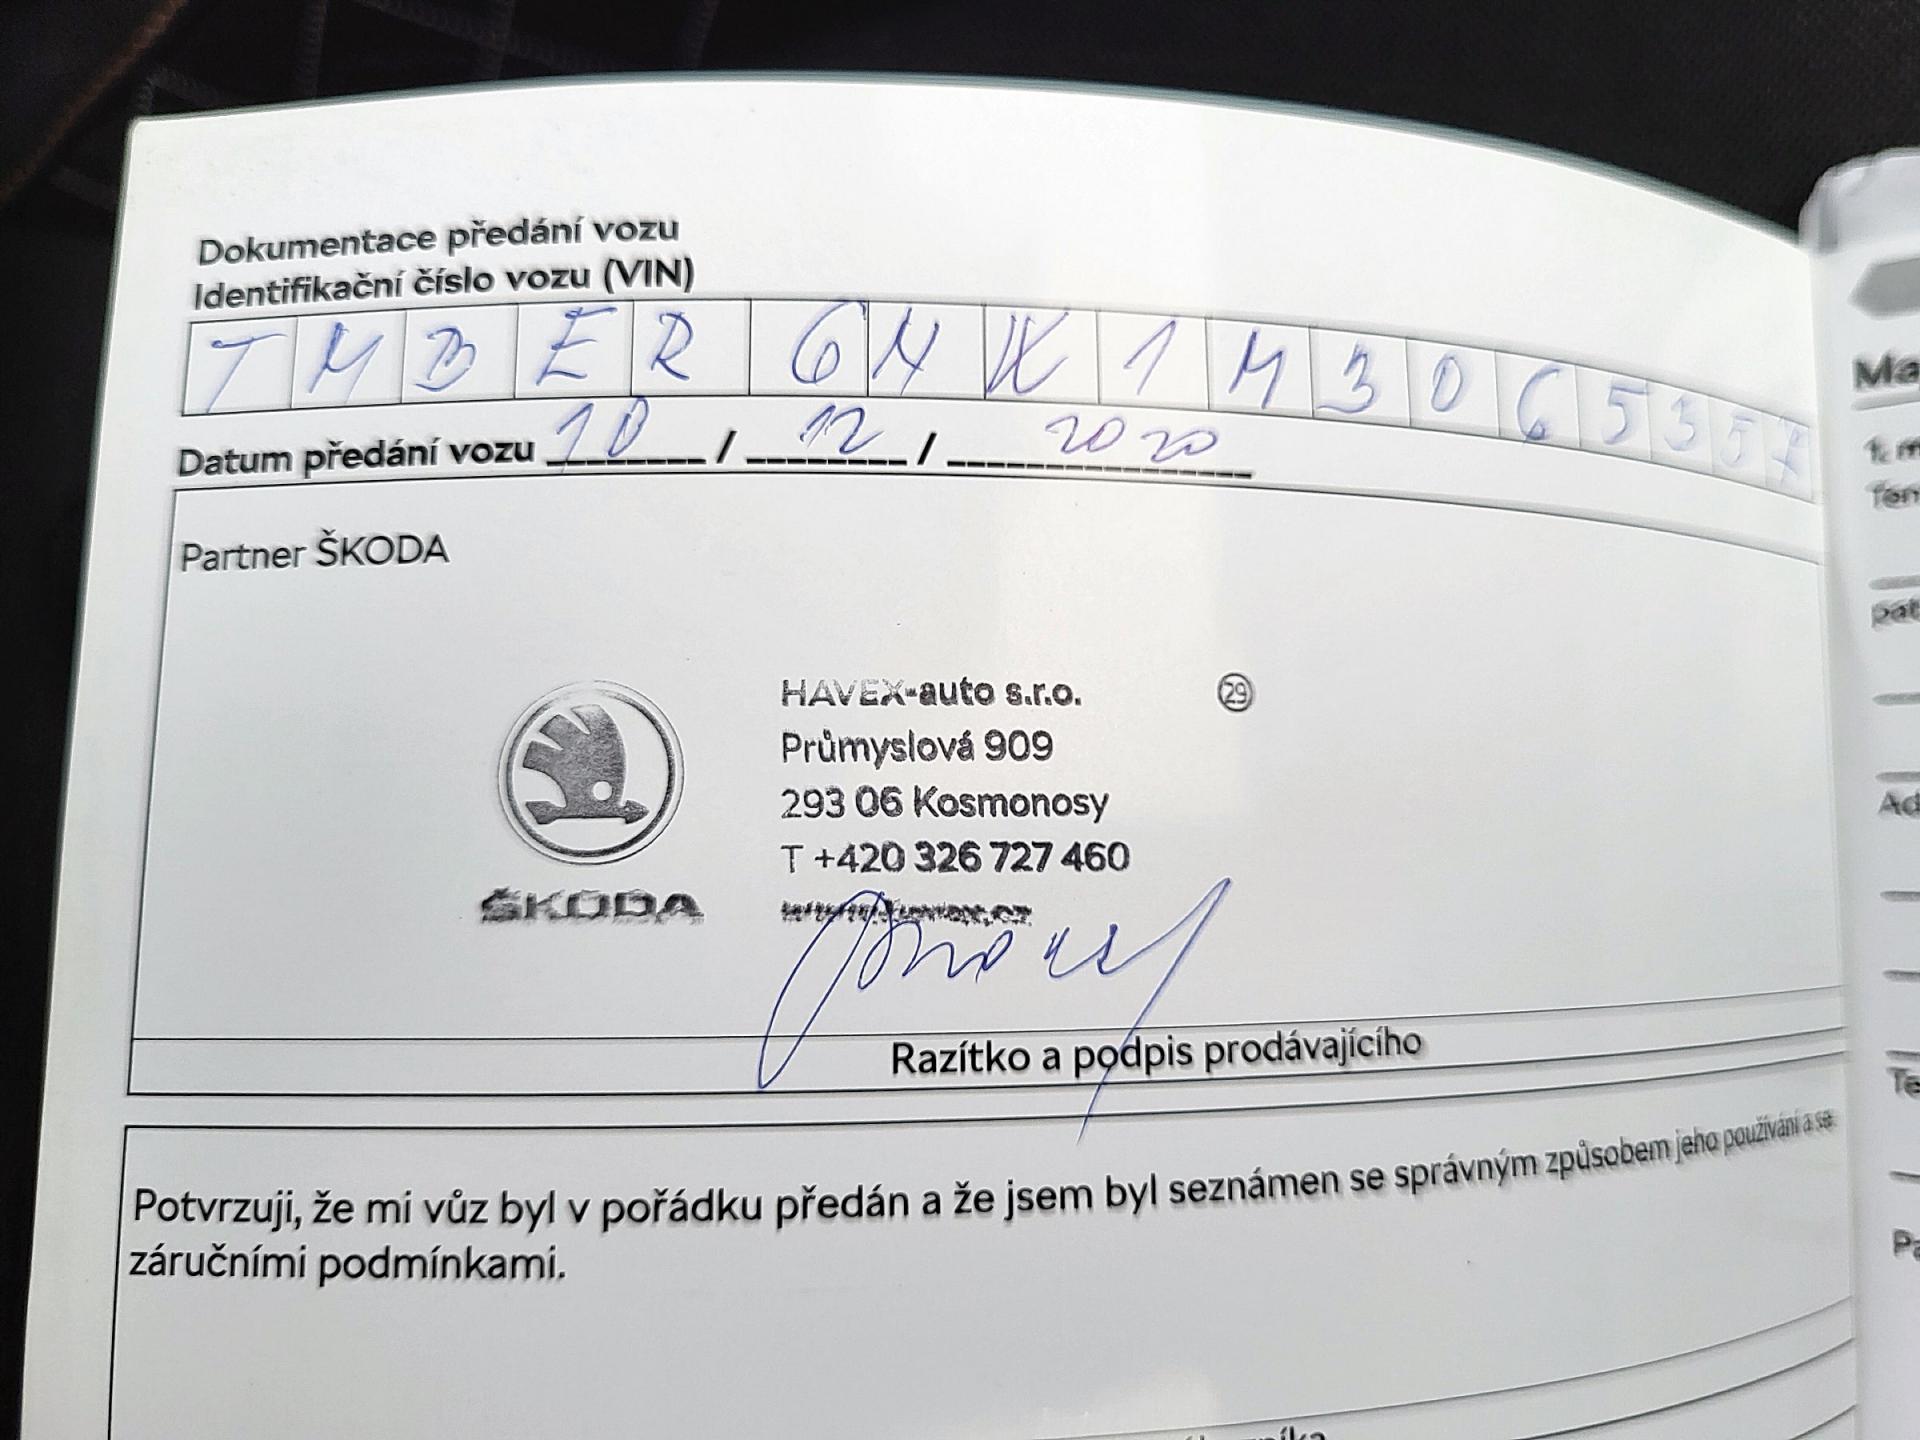 Dokumentace předání vozu
Identifikační číslo vozu (VIN)
T M B E R 6 N W 1 M 3 0 6 5 3 5 7
Datum předání vozu 10 / 12 / 2020
Partner ŠKODA
HAVEX-auto s.r.o. 29
Průmyslová 909
293 06 Kosmonosy
T +420 326 727 460
ŠKODA www.havex.cz
Razítko a podpis prodávajícího
Potvrzuji, že mi vůz byl v pořádku předán a že jsem byl seznámen se správným způsobem jeho používání a se
záručními podmínkami.
Ma
1. m
pat
Ad
Te